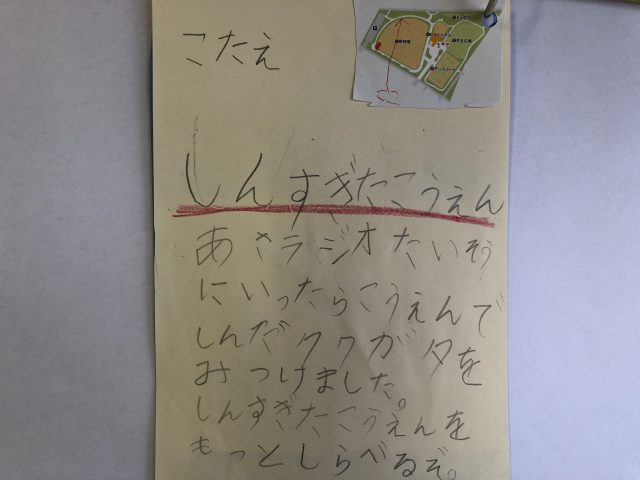 こたえ
しんすぎたこうえん
あさラジオたいそう
にいったらこうえんで
しんだクワガタを
みつけました。
しんすぎたこうえんを
もっとしらべるぞ。